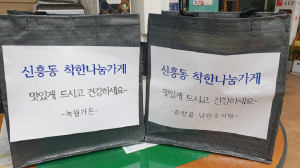 신흥동 착한나눔가게
맛있게 드시고 건강하세요~
-녹월가든-
신흥동 착한나눔가게
맛있게 드시고 건강하세요~